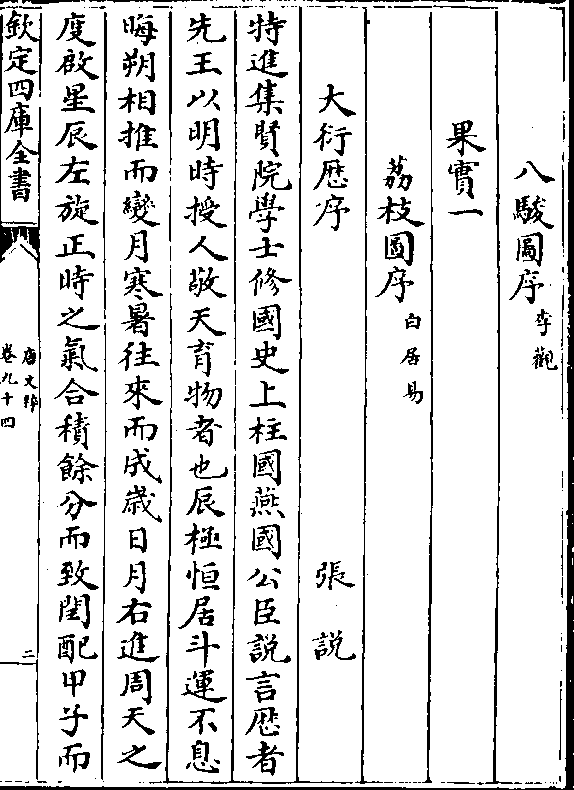 八駿圖序李觀
果實一
荔枝圖序白居易
大衍厯序 張說
特進集賢院學士修國史上柱國燕國公臣説言厯者
先王以明時授人敬天育物者也辰極恒居斗運不息
晦朔相推而變月寒暑往來而成歲日月右進周天之
度啟星辰左旋正時之氣合積餘分而致閏配甲子而
欽定四庫全書
唐文粹
卷九十四
二